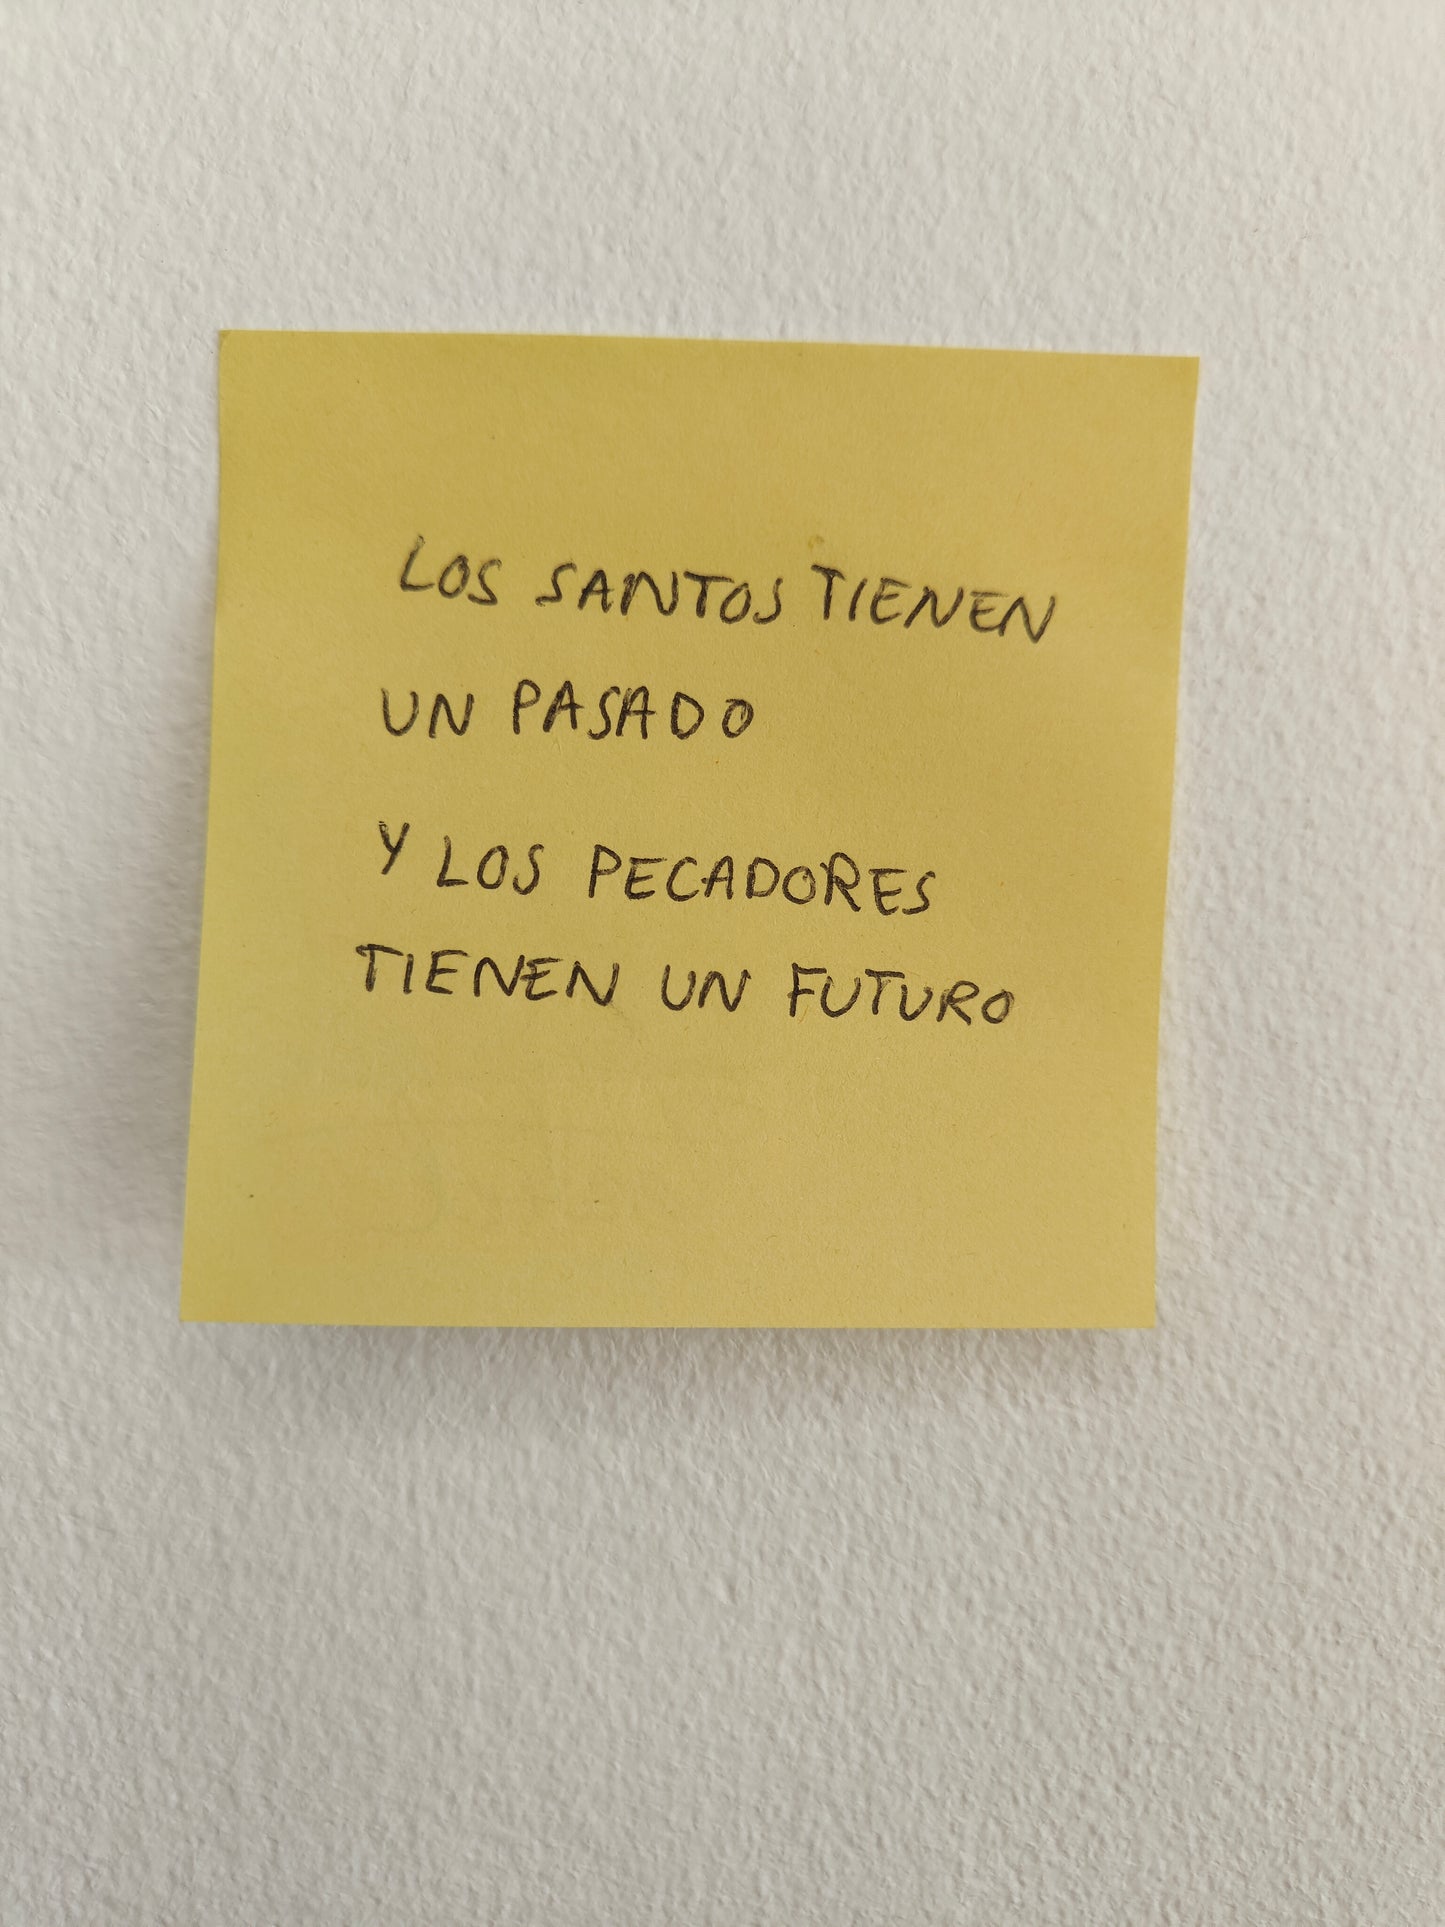 LOS SANTOS TIENEN
UN PASADO
Y LOS PECADORES
TIENEN UN FUTURO